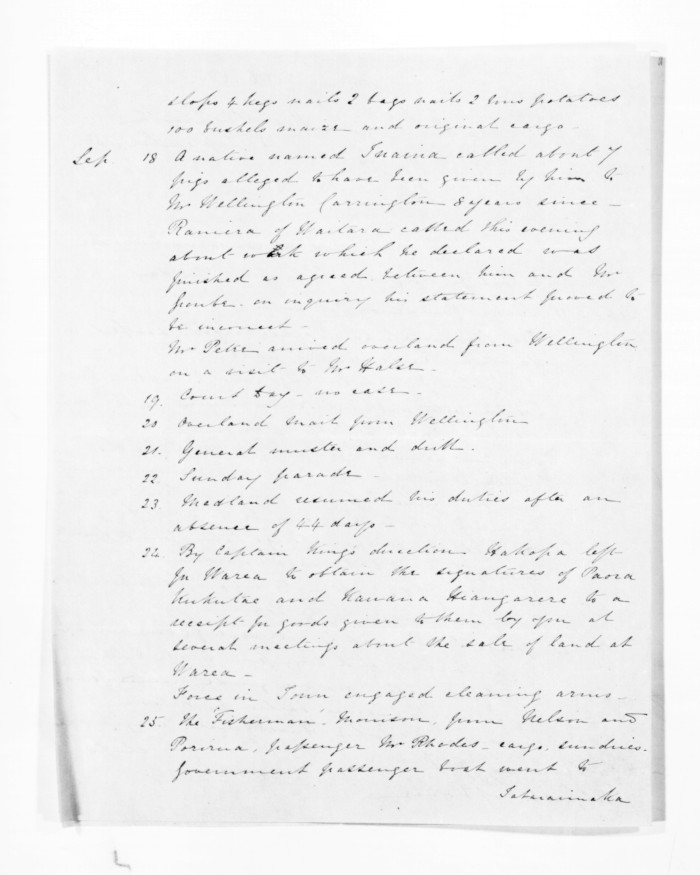 slops 4 kegs nails 2 bags nails 2 tons potatoes
100 bushels maize and original cargo.
Sep. 18 A native named Inaina called about 7
pigs alleged to have been given by him to
Mr Wellington Carrington 8 years since -
Ramera of Waitara called this evening
about work which he declared was
finished as agreed between him and Mr
on inquiry his statement proved to
be incorrect -
Mr Petre arrived overland from Wellington
on a visit to Mr Halse -
19. Court Day - no case -
20 Overland Mail from Wellington
21. General muster and drill.
22. Sunday parade -
23. Medland resumed his duties after an
absence of 44 days -
24. By Captain King's direction Hakopa left
for Warea to obtain the signatures of Paora
Kukutae and Kawana Hiangarere to a
receipt for goods given to them by you at
several meetings about the sale of land at
Warea -
Force in Town engaged cleaning arms -
25. The 'Fisherman', Morrison, from Nelson and
Porirua, passenger Mr Rhodes - cargo, sundries.
Government passenger boat went to
Tataraimaka